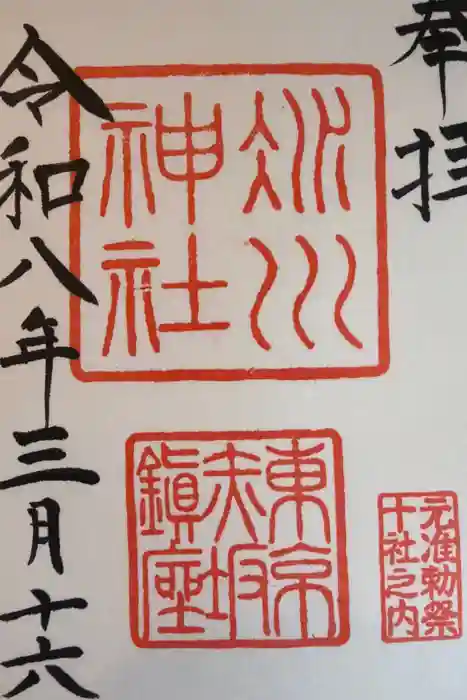 奉拝
氷川
神社
東京
赤坂
鎮座
元准勅祭
十社之内
令和八年三月十六